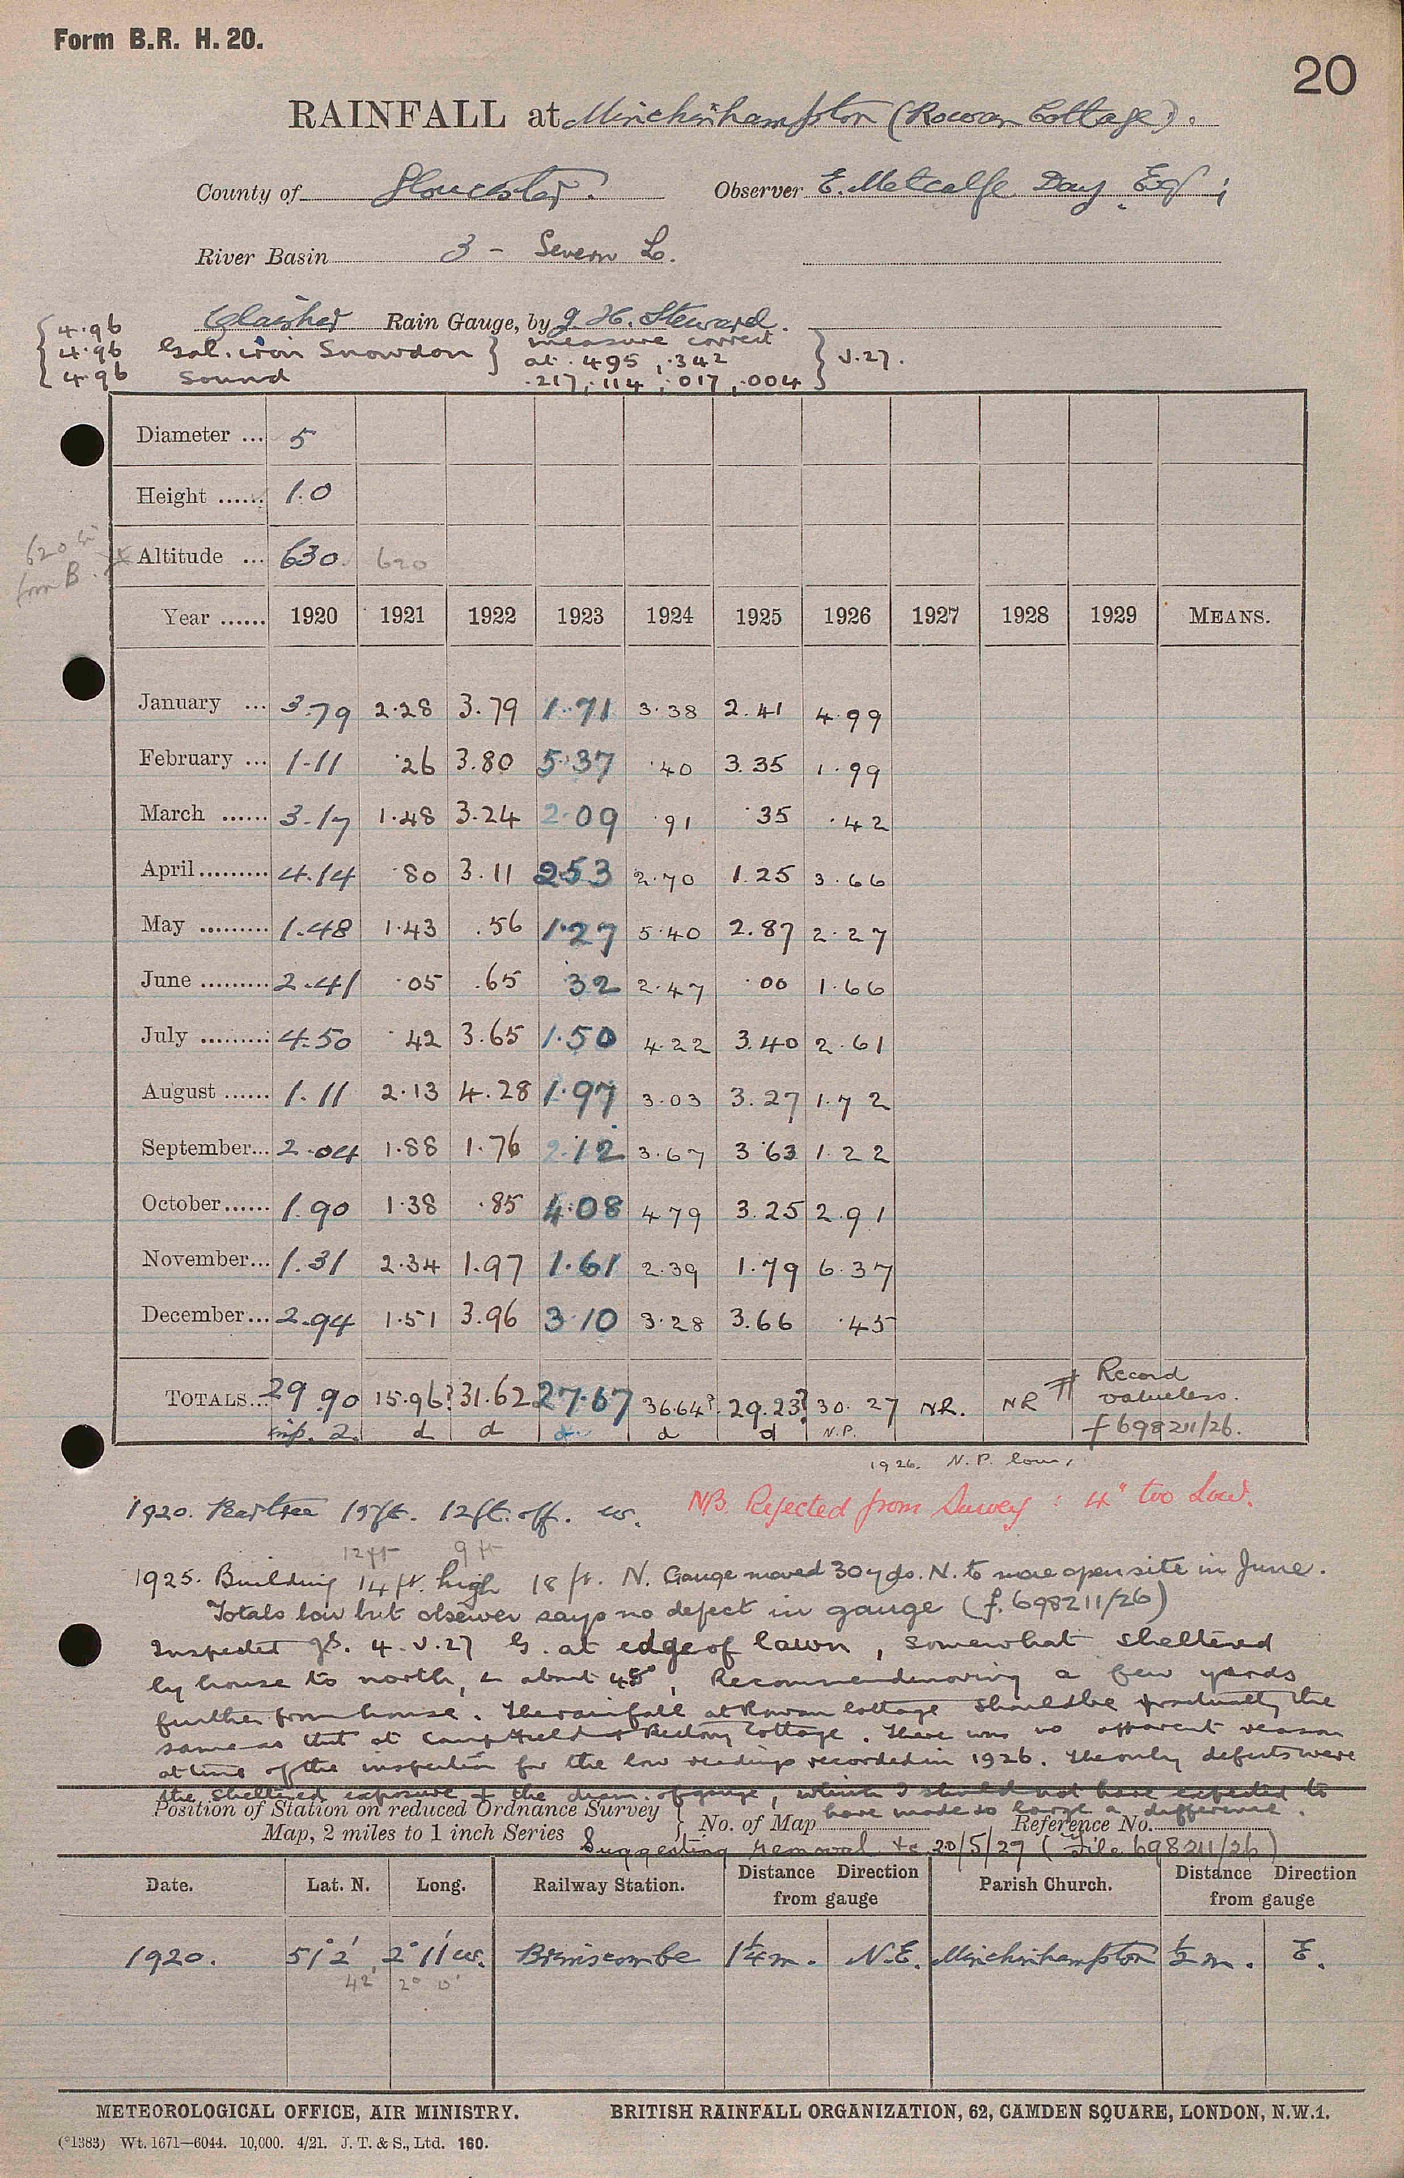 Form B.R. H. 20.
20
RAINFALL at Minchinhampton (Rowan Cottage).
County of Gloucester. Observer E. Metcalfe Day, Esq;
River Basin 3 - Severn L.
Glaisher Rain Gauge, by J. H. Steward.
{ 4.96 4.96 4.96 Gal. iron Snowdon } measure correct } V.27.
sound at .495, .342
.217, .114, .017, .004
Diameter ... 5
Height ...... 1.0
620 in form B.
Altitude ... 630. 620
Year ...... 1920 1921 1922 1923 1924 1925 1926 1927 1928 1929 MEANS.
January ... 3.79 2.28 3.79 1.71 3.38 2.41 4.99
February ... 1.11 .26 3.80 5.37 .40 3.35 1.99
March ...... 3.17 1.48 3.24 2.09 .91 .35 .42
April ......... 4.14 .80 3.11 2.53 2.70 1.25 3.66
May ......... 1.48 1.43 .56 1.27 5.40 2.87 2.27
June ......... 2.41 .05 .65 .32 2.47 .00 1.66
July ......... 4.50 .42 3.65 1.50 4.22 3.40 2.61
August ...... 1.11 2.13 4.28 1.97 3.03 3.27 1.72
September... 2.04 1.88 1.76 2.12 3.67 3.63 1.22
October...... 1.90 1.38 .85 4.08 4.79 3.25 2.91
November... 1.31 2.34 1.97 1.61 2.39 1.79 6.37
December... 2.94 1.51 3.96 3.10 3.28 3.66 .45
TOTALS... 29.90 15.96? 31.62 27.67 36.64? 29.23? 30.27 NR. NR # Record valueless. f 698211/26.
inp. 2. d d d d d N.P.
1926. N.P. low,
1920. Peartree 15ft. 12ft. off. W. NB. Rejected from Survey: 4" too Low.
12ft 9ft
1925. Building 14 ft. high 18 ft. N. Gauge moved 30 yds. N. to more open site in June.
Totals low but observer says no defect in gauge (f. 698211/26)
Inspected 4.V.27 G. at edge of lawn, somewhat sheltered
by house to north, about 45°, Recommend moving a few yards
further from house. The rainfall at Rowan Cottage should be practically the
same as that at Campfield & Rectory Cottage. There was no apparent reason
at time of the inspection for the low readings recorded in 1926. The only defects were
the sheltered exposure & the diam. of gauge, which I should not have expected to
have made so large a difference.
Position of Station on reduced Ordnance Survey Map, 2 miles to 1 inch Series } No. of Map Reference No.
Suggesting removal &c 20/5/27 (File 698211/26)
Date. Lat. N. Long. Railway Station. Distance Direction from gauge Parish Church. Distance Direction from gauge
1920. 51° 2' 2° 11' W. Brimscombe 1¼ m. N.E. Minchinhampton ½ m. E.
42' 2° 0'
METEOROLOGICAL OFFICE, AIR MINISTRY. BRITISH RAINFALL ORGANIZATION, 62, CAMDEN SQUARE, LONDON, N.W.1.
(*1383) Wt. 1671—6044. 10,000. 4/21. J. T. & S., Ltd. 160.